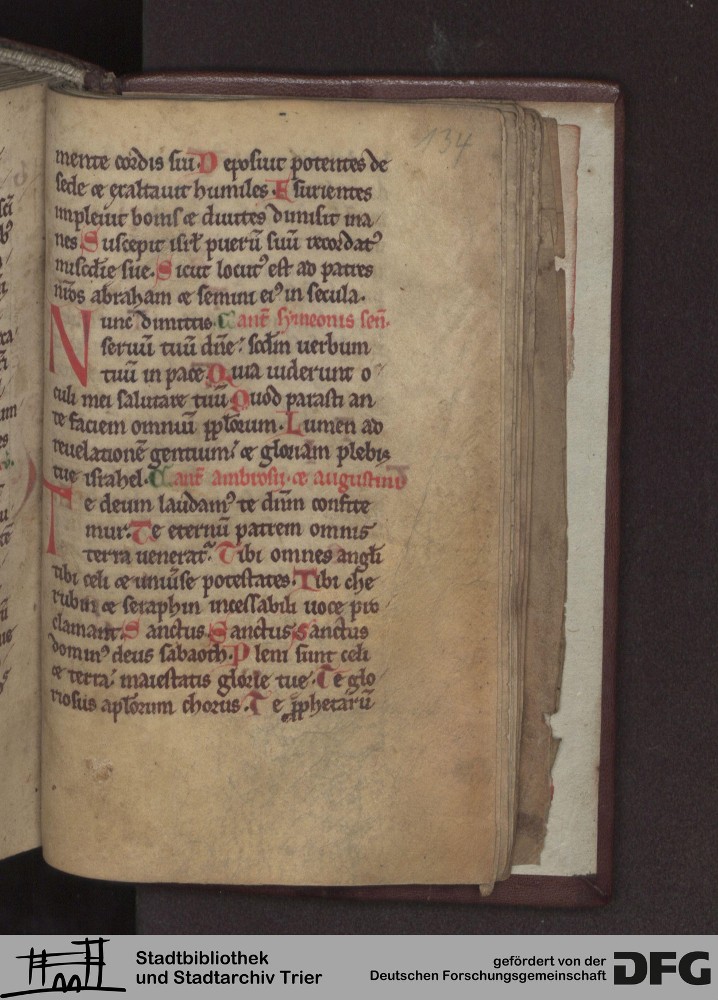 134
mente cordis sui. Deposuit potentes de
sede & exaltauit humiles. Esurientes
impleuit bonis & diuites dimisit ina
nes. Suscepit isrł puerū suū recordatꝰ
miscďie sue. Sicut locutꝰ est ad patres
nr̄os abraham & semini eiꝰ in secula.
Nunc dimittis. Cant̄ symeonis sen̄.
seruū tuū dn̄e: scďm uerbum
tuū in pace Quia uiderunt o
culi mei salutare tuū Quod parasti an
te faciem omniū ppl̄orum. Lumen ad
reuelationē gentium: & gloriam plebis
tue israhel. Cant̄ ambrosii. & augustini
Te deum laudamꝰ te dn̄m confite
mur. Te eternū patrem omnis
terra ueneratᷣ. Tibi omnes angl̄i
tibi celi & uniu̾se potestates. Tibi che
rubin & seraphin incessabili uoce pro
clamant. Sanctus Sanctus Sanctus
dominꝰ deus sabaoth. Pleni sunt celi
& terra: maiestatis glorie tue. Te glo
riosus apl̄orum chorus. Te ꝓphetarū
Stadtbibliothek
und Stadtarchiv Trier
gefördert von der
Deutschen Forschungsgemeinschaft
DFG